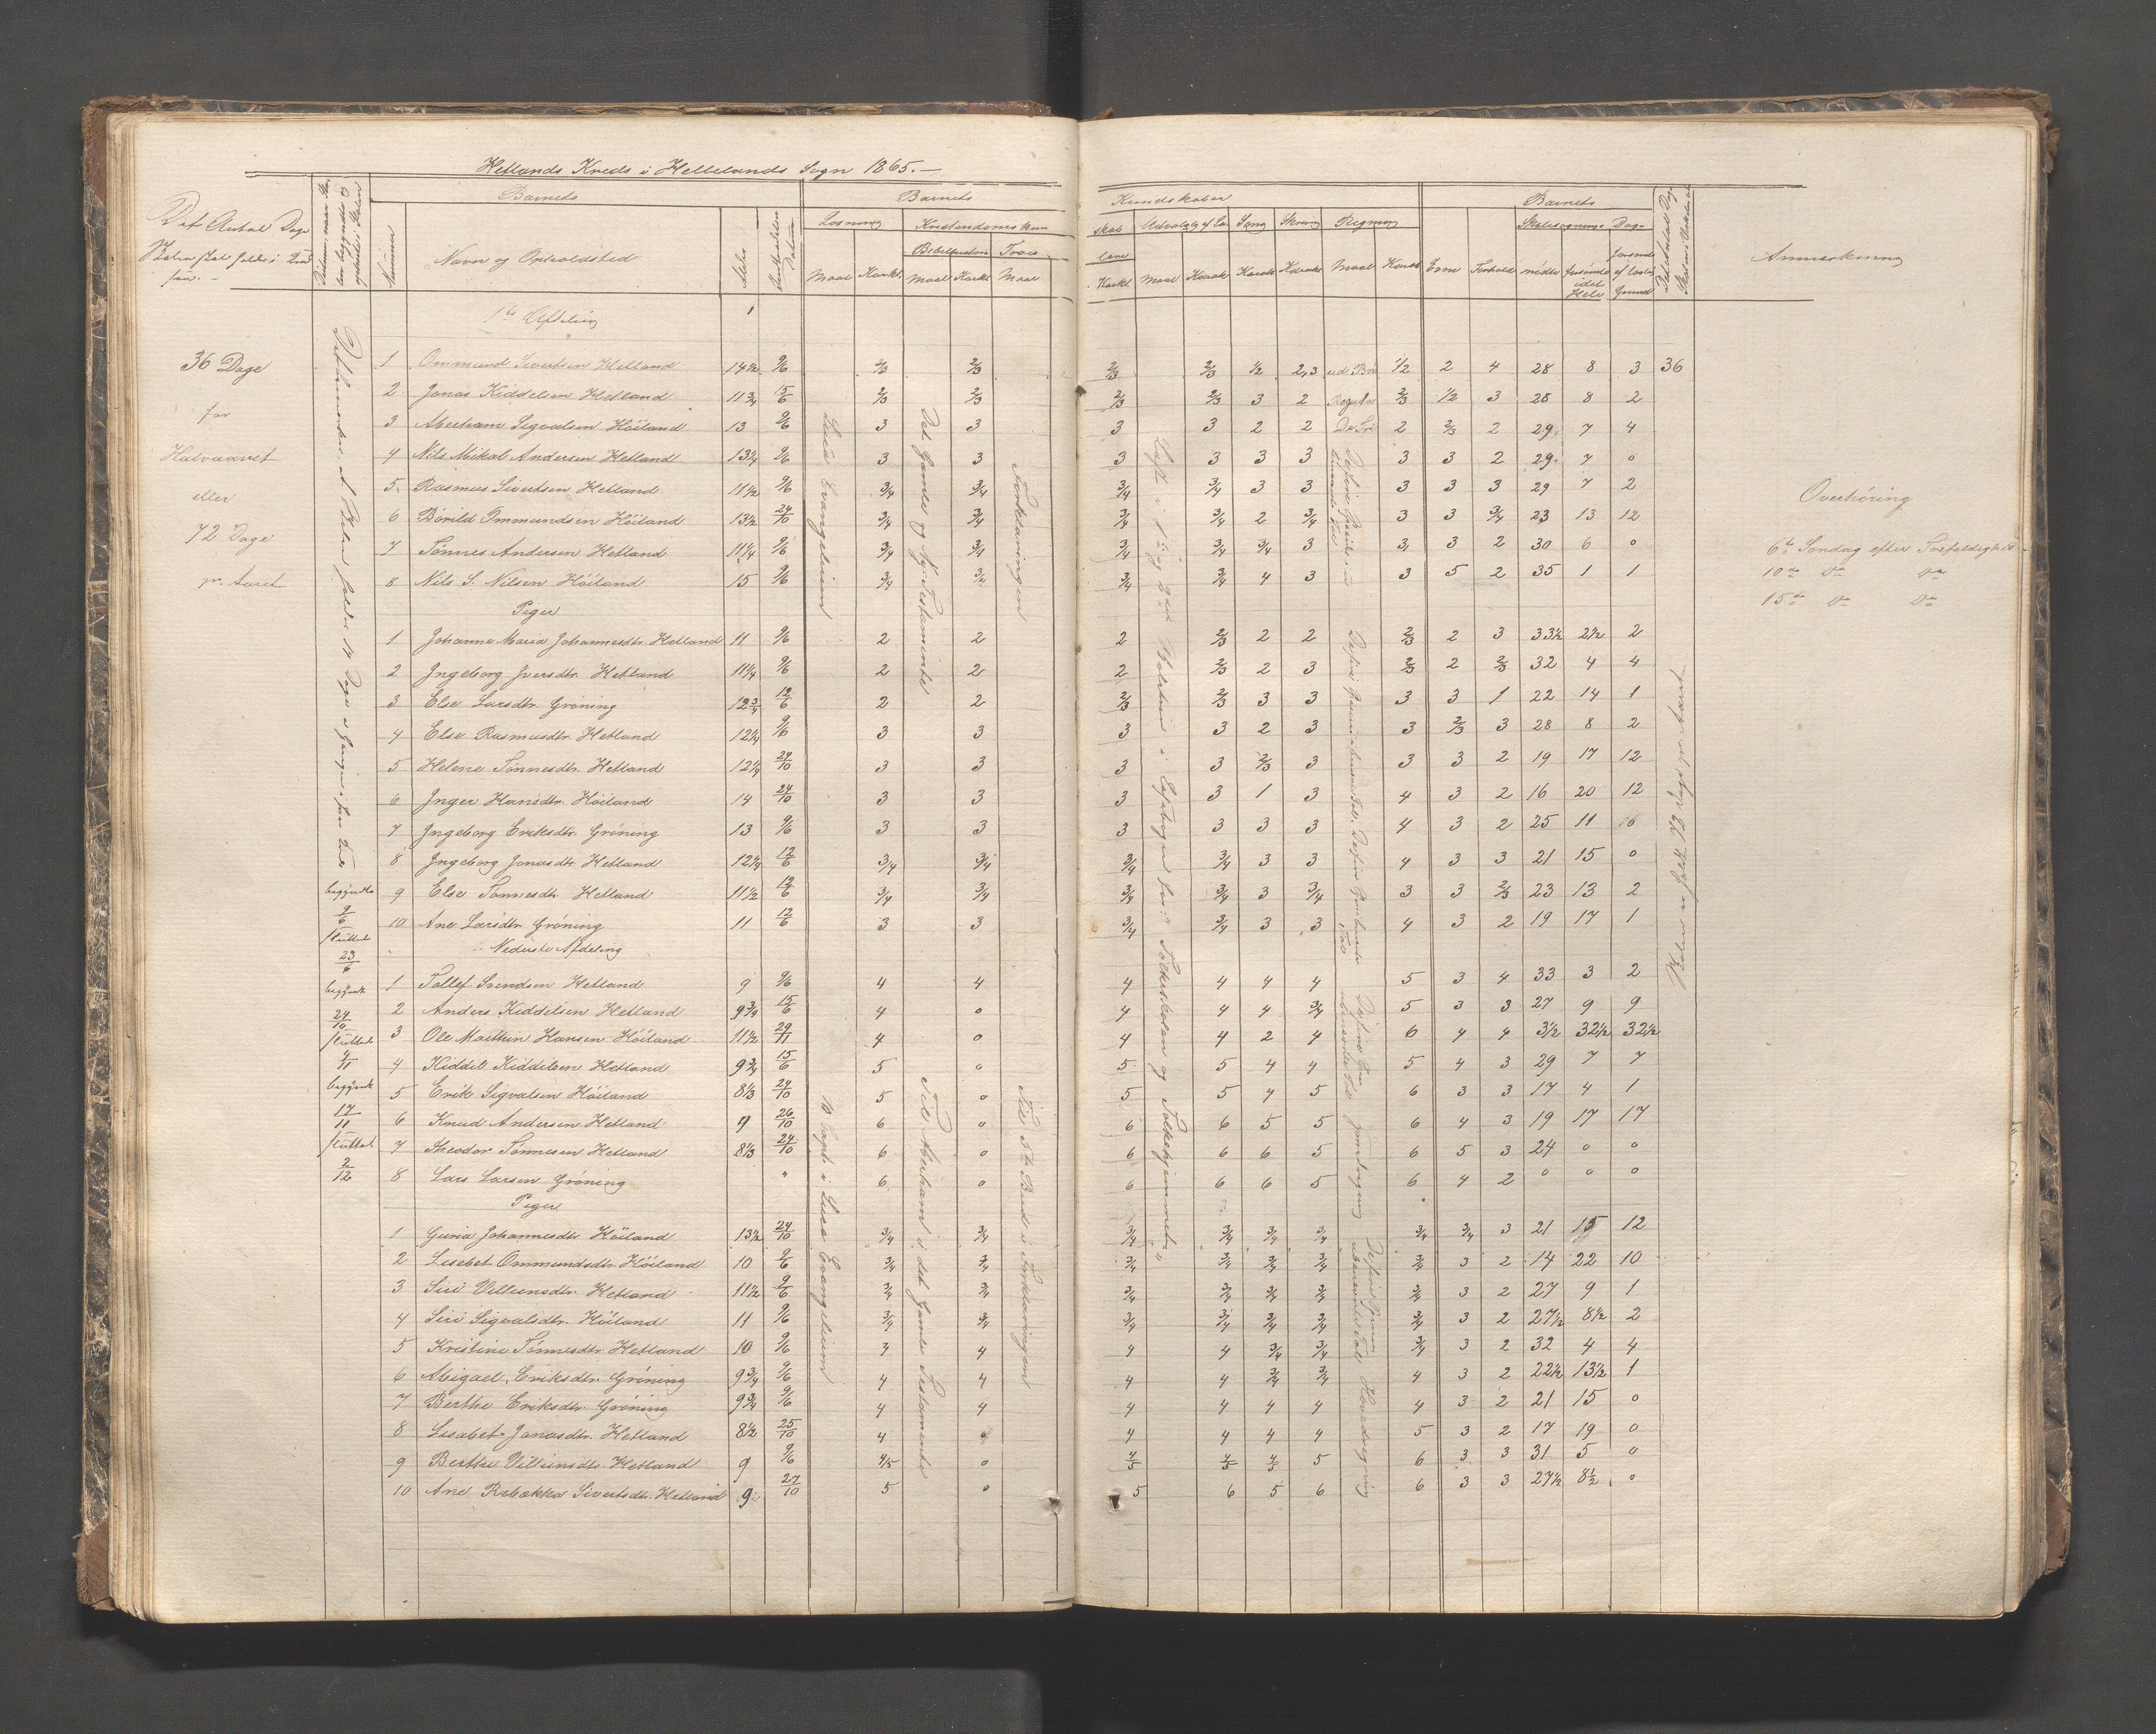 Hetlands Kreds i Hellelands Sogn 1865.—
Barnets
Barnets
Det Antal Dage
Skolen skal holdes i Kred
sen.—
Nummer
Navn og Opholdsted
Alder
Læsning
Kristendomskun
Maal Karkt.
Maal Karkt
Troes
Maal
Kundskaber
Barnets
skab Udvalg af Læ. Sang Skrivn Regning
Skolesøgnings Dage
lære
Karkt. Maal Karak Karak Karak Maal Karak Evne Forhold mødte forsømte det Hele forsømte af lovlig Grund
Anmærkning
1ste Afdeling
36 Dage
for
Halvaaret
eller
72 Dage
pr. Aaret
1 Ommund Sivertsen Hetland 14½ 9/6 2/3 2/3 2/3 2/3 1/2 2,3 1/2 2 4 28 8 3 36
2 Jonas Kiddelsen Hetland 11¾ 15/6 2/3 2/3 2/3 2/3 3 2 2/3 1/2 3 28 8 2
3 Abraham Sigvalsen Höiland 13 9/6 3 3 3 3 2 2 2 2/3 2 29 7 4
4 Nils Mikal Andersen Hetland 13¼ 9/6 3 3 3 3 3 3 3 3 2 29 7 0
5 Rasmus Sivertsen Hetland 11½ 9/6 3/4 3/4 3/4 3/4 3 3 3 3 3 29 7 2
6 Börild Ommundsen Höiland 13½ 24/10 3/4 3/4 3/4 3/4 2 3/4 3 3 3/4 23 13 12
7 Tönnes Andersen Hetland 11¼ 9/6 3/4 3/4 3/4 3/4 3/4 3 3 3 2 30 6 0
8 Nils S. Nilsen Höiland 15 9/6 3/4 3/4 3/4 3/4 4 3 3 5 2 35 1 1
Overhöring
6te Söndag efter Trefoldighed
10de Do Do
15de Do Do
Piger
1 Johanne Maria Johannesdtr. Hetland 11 9/6 2 2 2 2/3 2 2 2/3 2 3 33½ 2½ 2
2 Ingeborg Iversdtr. Hetland 11¼ 9/6 2 2 2 2/3 2 3 2/3 2 2/3 32 4 4
3 Else Larsdtr. Gröning 12¾ 12/6 2 2 2/3 2/3 3 3 3 3 1 22 14 1
4 Else Rasmusdtr. Hetland 12¼ 9/6 3 3 3 3 2 3 3 2/3 3 28 8 2
5 Helene Tönnesdtr. Hetland 12¼ 24/10 3 3 3 3 2/3 3 3 3 2 19 17 12
6 Inger Hansdtr. Höiland 14 24/10 3 3 3 3 1 3 4 3 2 16 20 12
7 Ingeborg Eriksdtr. Gröning 13 9/6 3 3 3 3 3 3 4 3 2 25 11
8 Ingeborg Jonasdtr. Hetland 12¼ 12/6 3/4 3/4 3/4 3/4 3 3 4 3 3 21 15 0
9 Else Tönnesdtr. Hetland 11½ 12/6 3/4 3/4 3/4 3/4 3 3/4 3 3 2/3 23 13 2
10 Ane Larsdtr Gröning 11 12/6 3 3 3/4 3/4 3 3 4 3 2 19 17 1
Nederste Afdeling
1 Tollef Svendsen Hetland 9 9/6 4 4 4 4 4 4 5 3 4 33 3 2
2 Anders Kiddelsen Hetland 9¾ 15/6 4 0 4 4 4 3/4 5 3 3 27 9 9
3 Ole Matthin Hansen Höiland 11½ 29/11 4 0 4 4 2 4 6 4 4 3½ 32½ 32½
4 Kiddel Kiddelsen Hetland 9¾ 15/6 5 0 5 5 4 4 5 4 3 29 7 7
5 Erik Sigvalsen Höiland 8⅓ 24/10 5 0 5 5 4 5 6 3 3 17 4 1
6 Knud Andersen Hetland 9 26/10 6 0 6 6 5 5 6 4 3 19 17 17
7 Theodor Tönnesen Hetland 8⅓ 24/10 6 0 6 6 6 5 6 5 3 24 0 0
8 Lars Larsen Gröning " 6 0 6 6 6 5 6 4 2 0 0 0
Piger
1 Guria Johannesdtr. Höiland 13½ 24/10 3/4 3/4 3/4 3/4 3/4 3/4 3/4 3/4 3 21 15 12
2 Lisebet Ommundsdtr. Höiland 10 9/6 3/4 3/4 3/4 3/4 3/4 3/4 3/4 3 2 14 22 10
3 Siri Villumsdtr. Hetland 11½ 9/6 3/4 3/4 3/4 3/4 3/4 3/4 3/4 3 2 27 9 1
4 Siri Sigvalsdtr. Höiland 11 9/6 3/4 3/4 3/4 3/4 3/4 3/4 3/4 3 2 27½ 8½ 2
5 Kristine Tönnesdtr. Hetland 10 9/6 3 4 4 4 3/4 3/4 3/4 3 2 32 4 4
6 Abigael Eriksdtr. Gröning 9¾ 9/6 4 4 4 4 3/4 3/4 4 3 2 22½ 13½ 1
7 Berthe Eriksdtr. Gröning 9¾ 9/6 4 4 4 4 4 4 4 3 2 21 15 0
8 Lisabet Jonasdtr. Hetland 8½ 25/10 4 0 4 4 4 4 5 3 2 17 19 0
9 Berthe Villumsdtr. Hetland 9 9/6 4/5 0 4/5 4/5 4/5 5 6 3 3 31 5 0
10 Ane Rebekka Sivertsdtr. Hetland 9 27/10 5 0 5 6 5 6 6 3 3 27½ 8½ 0
begyndte
9/6
sluttet
23/6
begyndt
24/10
sluttet
4/11
begyndt
17/11
sluttet
2/12
Lucæ Evangelium
Det Gamle og Ny-Testamente
Forklaringen
10 Kapt. i Lucæ Evangelium
Til Abraham i det Gamle Testamente
Til 3die Bud i Forklaringen
Læst i 1ste og 2den i Læsebogen for Folkeskolen og Folkehjemmet
Skolen er holdt 72 Dage pr. Aaret